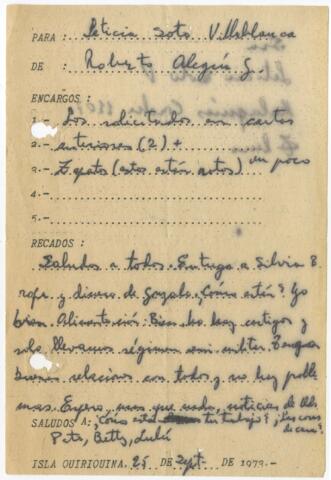 PARA : Leticia Soto Villablanca
DE : Roberto Alegría S.
ENCARGOS :
1.- Los solicitados en cartas
2.- anteriores (2) +
3.- Zapatos (estos están rotos) un poco
4.-
5.-
RECADOS :
Saludos a todos. Entrega a Silvia B
ropa y dinero de Gonzalo ¿Cómo están? Yo
bien. Alimentación: Bien. No hay castigos y
solo llevamos régimen semi militar. Tengo
buenas relaciones con todos y no hay proble
mas. Espero mas que nada, noticias de Uds.
SALUDOS A: ¿Como está tu trabajo? ¿Las cosas
de casa?
Pato, Betty, Lulú
ISLA QUIRIQUINA, 25 de Sept- DE 1973.-